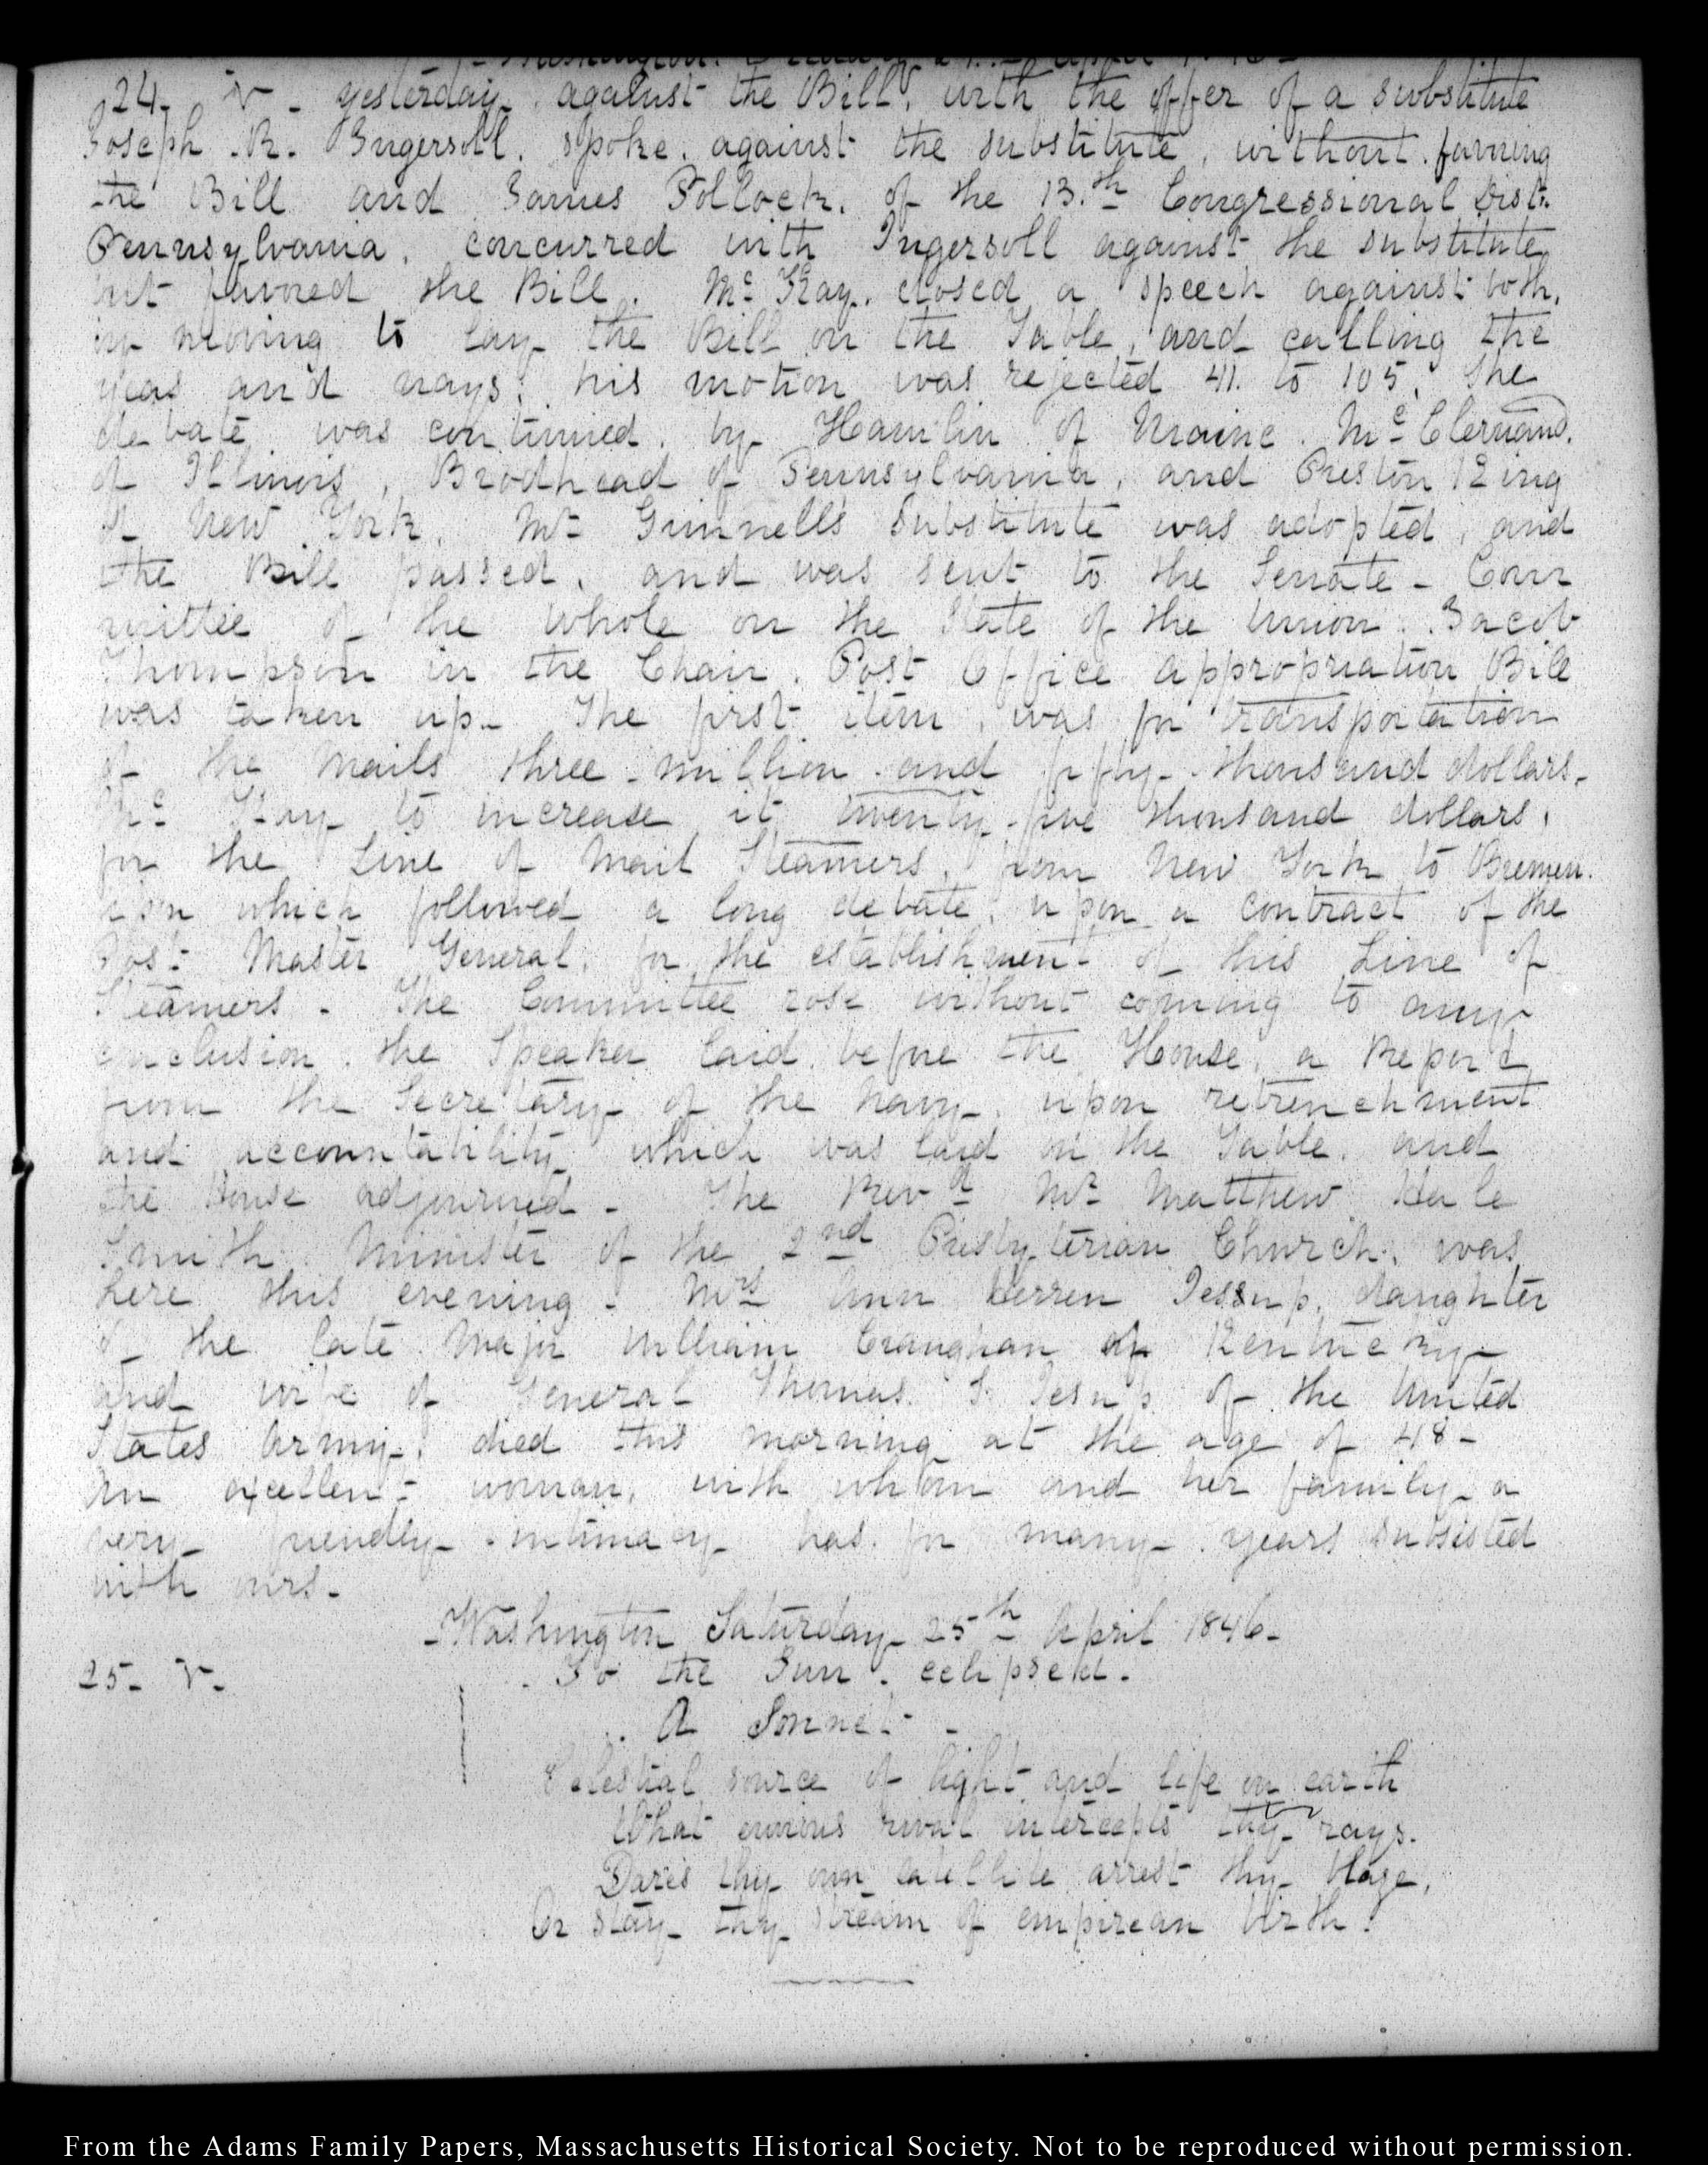 Washington. Friday 24th April 1846-
24. V- yesterday, against the Bill, with the offer of a substitute
Joseph. R. Ingersoll. spoke. against the substitute, without favoring
the Bill and James Pollock. of the 13.th Congressional Dist.
Pennsylvania, concurred with Ingersoll against the substitute
but favored the Bill. Mc Kay. closed a speech against both,
by moving to lay the Bill on the Table, and calling the
yeas and nays; his motion was rejected 41. to 105. The
debate was continued. by Hamlin of Maine. Mc Clernand.
of Illinois, Brodhead of Pennsylvania, and Preston King
of New York. Mr Grinnell's substitute was adopted, and
the Bill passed, and was sent to the Senate- Com
mittee of the whole on the State of the Union. Jacob
Thompson in the Chair. Post Office appropriation Bill
was taken up- The first item, was for transportation
of the Mails three million and fifty thousand dollars-
Mc Kay to increase it twenty-five thousand dollars,
for the Line of Mail Steamers, from New York to Bremen.
upon which followed a long debate, upon a contract of the
Post Master General, for the establishment of this Line of
Steamers- The Committee rose without coming to any
conclusion. the Speaker laid before the House, a Report
from the Secretary of the Navy. upon retrenchment
and accountability which was laid on the Table. and
the House adjourned- The Revd Mr Matthew Hale
Smith Minister of the 2nd Presbyterian Church, was
here this evening- Mrs Ann Herren Jessup, daughter
of the late Major William Craughan of Kentucky-
and wife of General Thomas. S. Jesup of the United
States Army, died this morning at the age of 48-
An excellent woman, with whom and her family a
very friendly intimacy has for many years subsisted
with ours-
-Washington Saturday 25th April 1846-
25- V- To the Sun. eclipsed.
A Sonnet-
Celestial source of light and life on earth
What envious rival intercepts thy rays.
Dares thy own satellite arrest thy blaze,
Or stay thy stream of empirean birth?
From the Adams Family Papers, Massachusetts Historical Society. Not to be reproduced without permission.